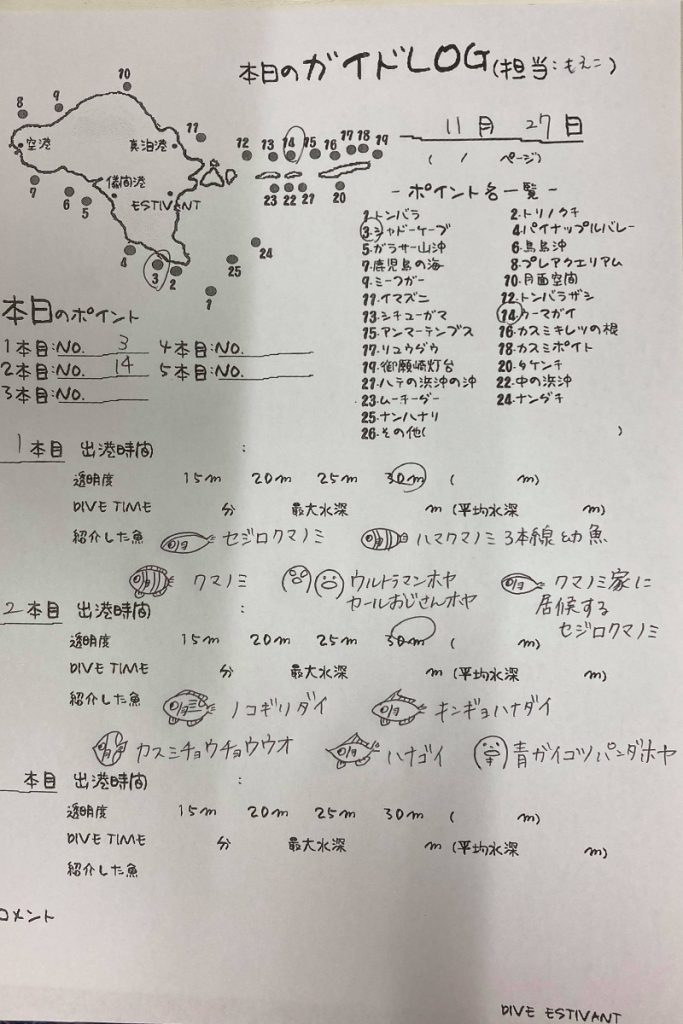 本日のガイドLOG(担当:もえこ)
11月 27日
( / ページ)
10
9
8
11
空港
真泊港
儀間港
ESTIVANT
7
6
5
4
3
2
1
25
24
12 13 14 15 16 17 18 19
23 22 21 20
- ポイント名一覧 -
1.トンバラ 2.トリノクチ
3.シャドーケーブ 4.パイナップルバレー
5.ガラサー山沖 6.鳥島沖
7.鹿児島の海 8.プレアクエリアム
9.ミーフガー 10.月面空間
11.イマズニ 12.トンバラザシ
13.シチューガマ 14.ウーマガイ
15.アンマーテンブス 16.カスミキレツの根
17.リュウグウ 18.カスミポイト
19.御願崎灯台 20.タケンチ
21.ハテの浜沖の沖 22.中の浜沖
23.ムーチーグー 24.ナングチ
25.ナンハナリ
26.その他( )
本日のポイント
1本目:NO. 3 4本目:NO.
2本目:NO. 14 5本目:NO.
3本目:NO.
1本目 出港時間 :
透明度 15m 20m 25m 30m ( m)
DIVE TIME 分 最大水深 m (平均水深 m)
紹介した魚 セジロクマノミ ハマクマノミ 3本線幼魚
クマノミ ウルトラマンホヤ クマノミ家に
カールおじさんホヤ 居候する
セジロクマノミ
2本目 出港時間 :
透明度 15m 20m 25m 30m ( m)
DIVE TIME 分 最大水深 m (平均水深 m)
紹介した魚 ノコギリダイ キンギョハナダイ
カスミチョウチョウウオ ハナゴイ 青ガイコツパンダホヤ
本目 出港時間 :
透明度 15m 20m 25m 30m ( m)
DIVE TIME 分 最大水深 m (平均水深 m)
紹介した魚
コメント
DIVE ESTIVANT